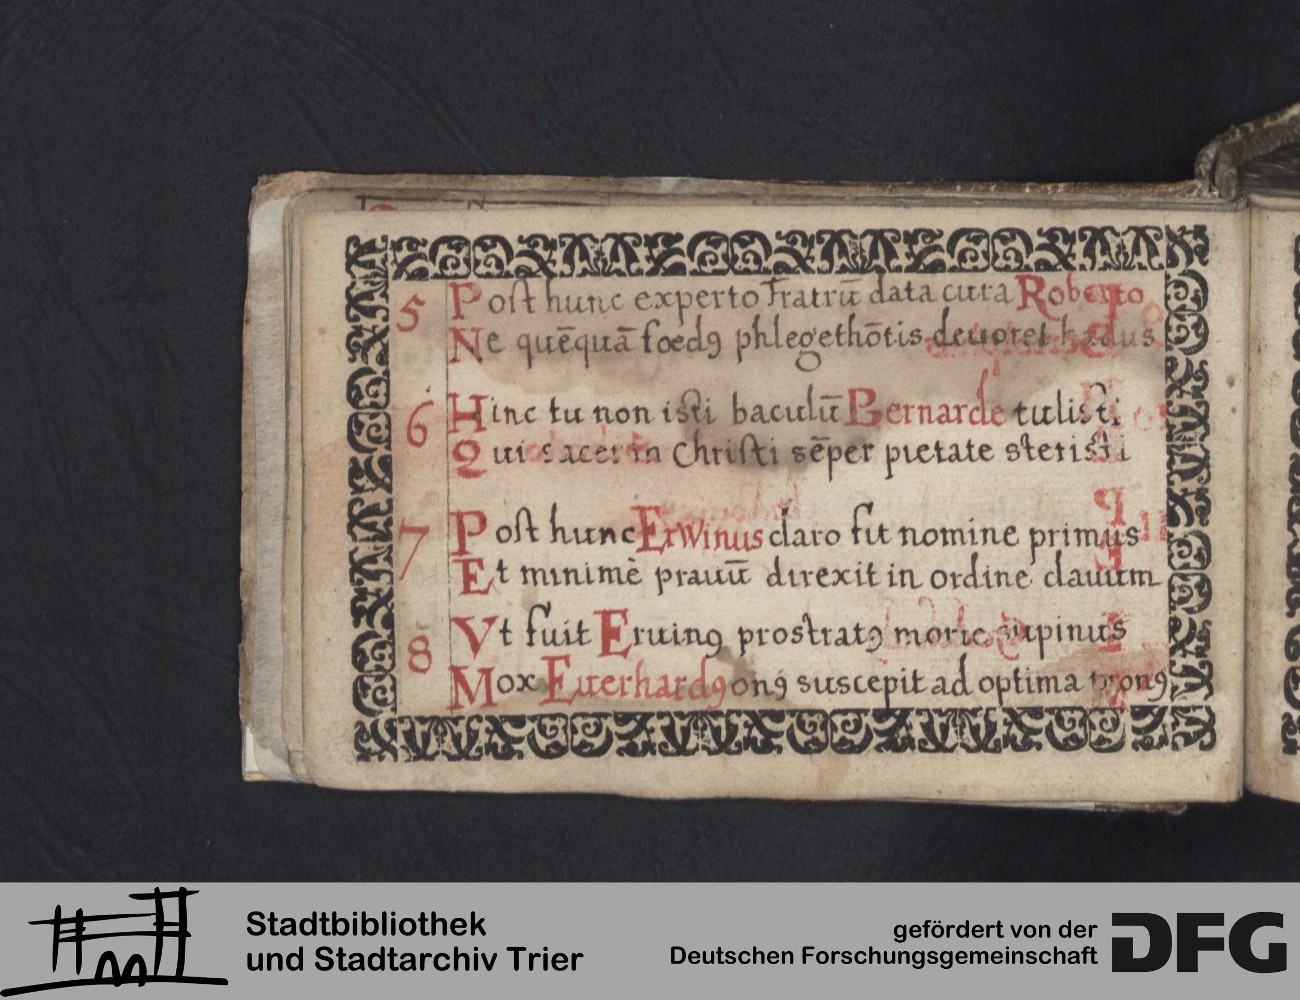 5 Post hunc experto fratrū data cura Roberto
Ne quēquā foedꝰ phlegethōtis deuoret hædus
6 Hinc tu non isti baculū Bernarde tulisti
Qui sacer in Christi sēper pietate stetisti
7 Post hunc Erwinus claro fit nomine primus
Et minimè prauū direxit in ordine clauum
8 Vt fuit Eruinꝰ prostratꝰ morte supinus
Mox Euerhardꝰ onꝰ suscepit ad optima pronꝰ
Stadtbibliothek
und Stadtarchiv Trier
gefördert von der
Deutschen Forschungsgemeinschaft
DFG